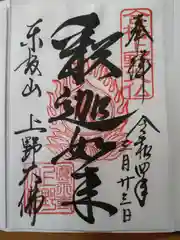 奉拝
令和四年
二月廿三日
釈迦如来
東叡山
上野大佛